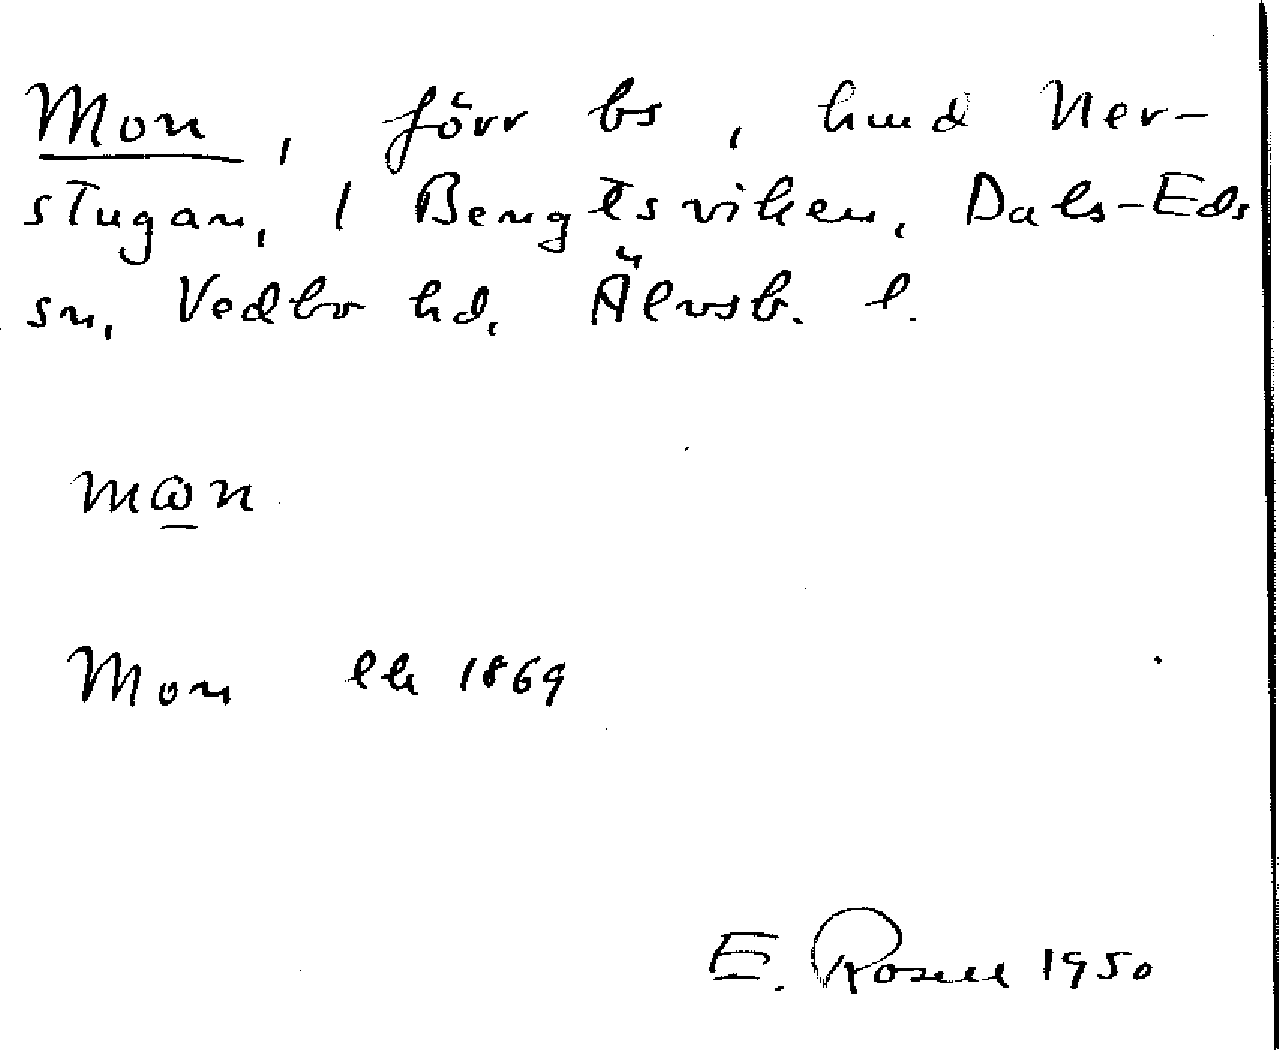 Mon, förr bs, hmd Ner-
stugan, 1 Bengtsviken, Dals-Eds
sn, Vedbo hd, Älvsb. l.
mɷn
Mon llh 1869
E. Rosell 1950